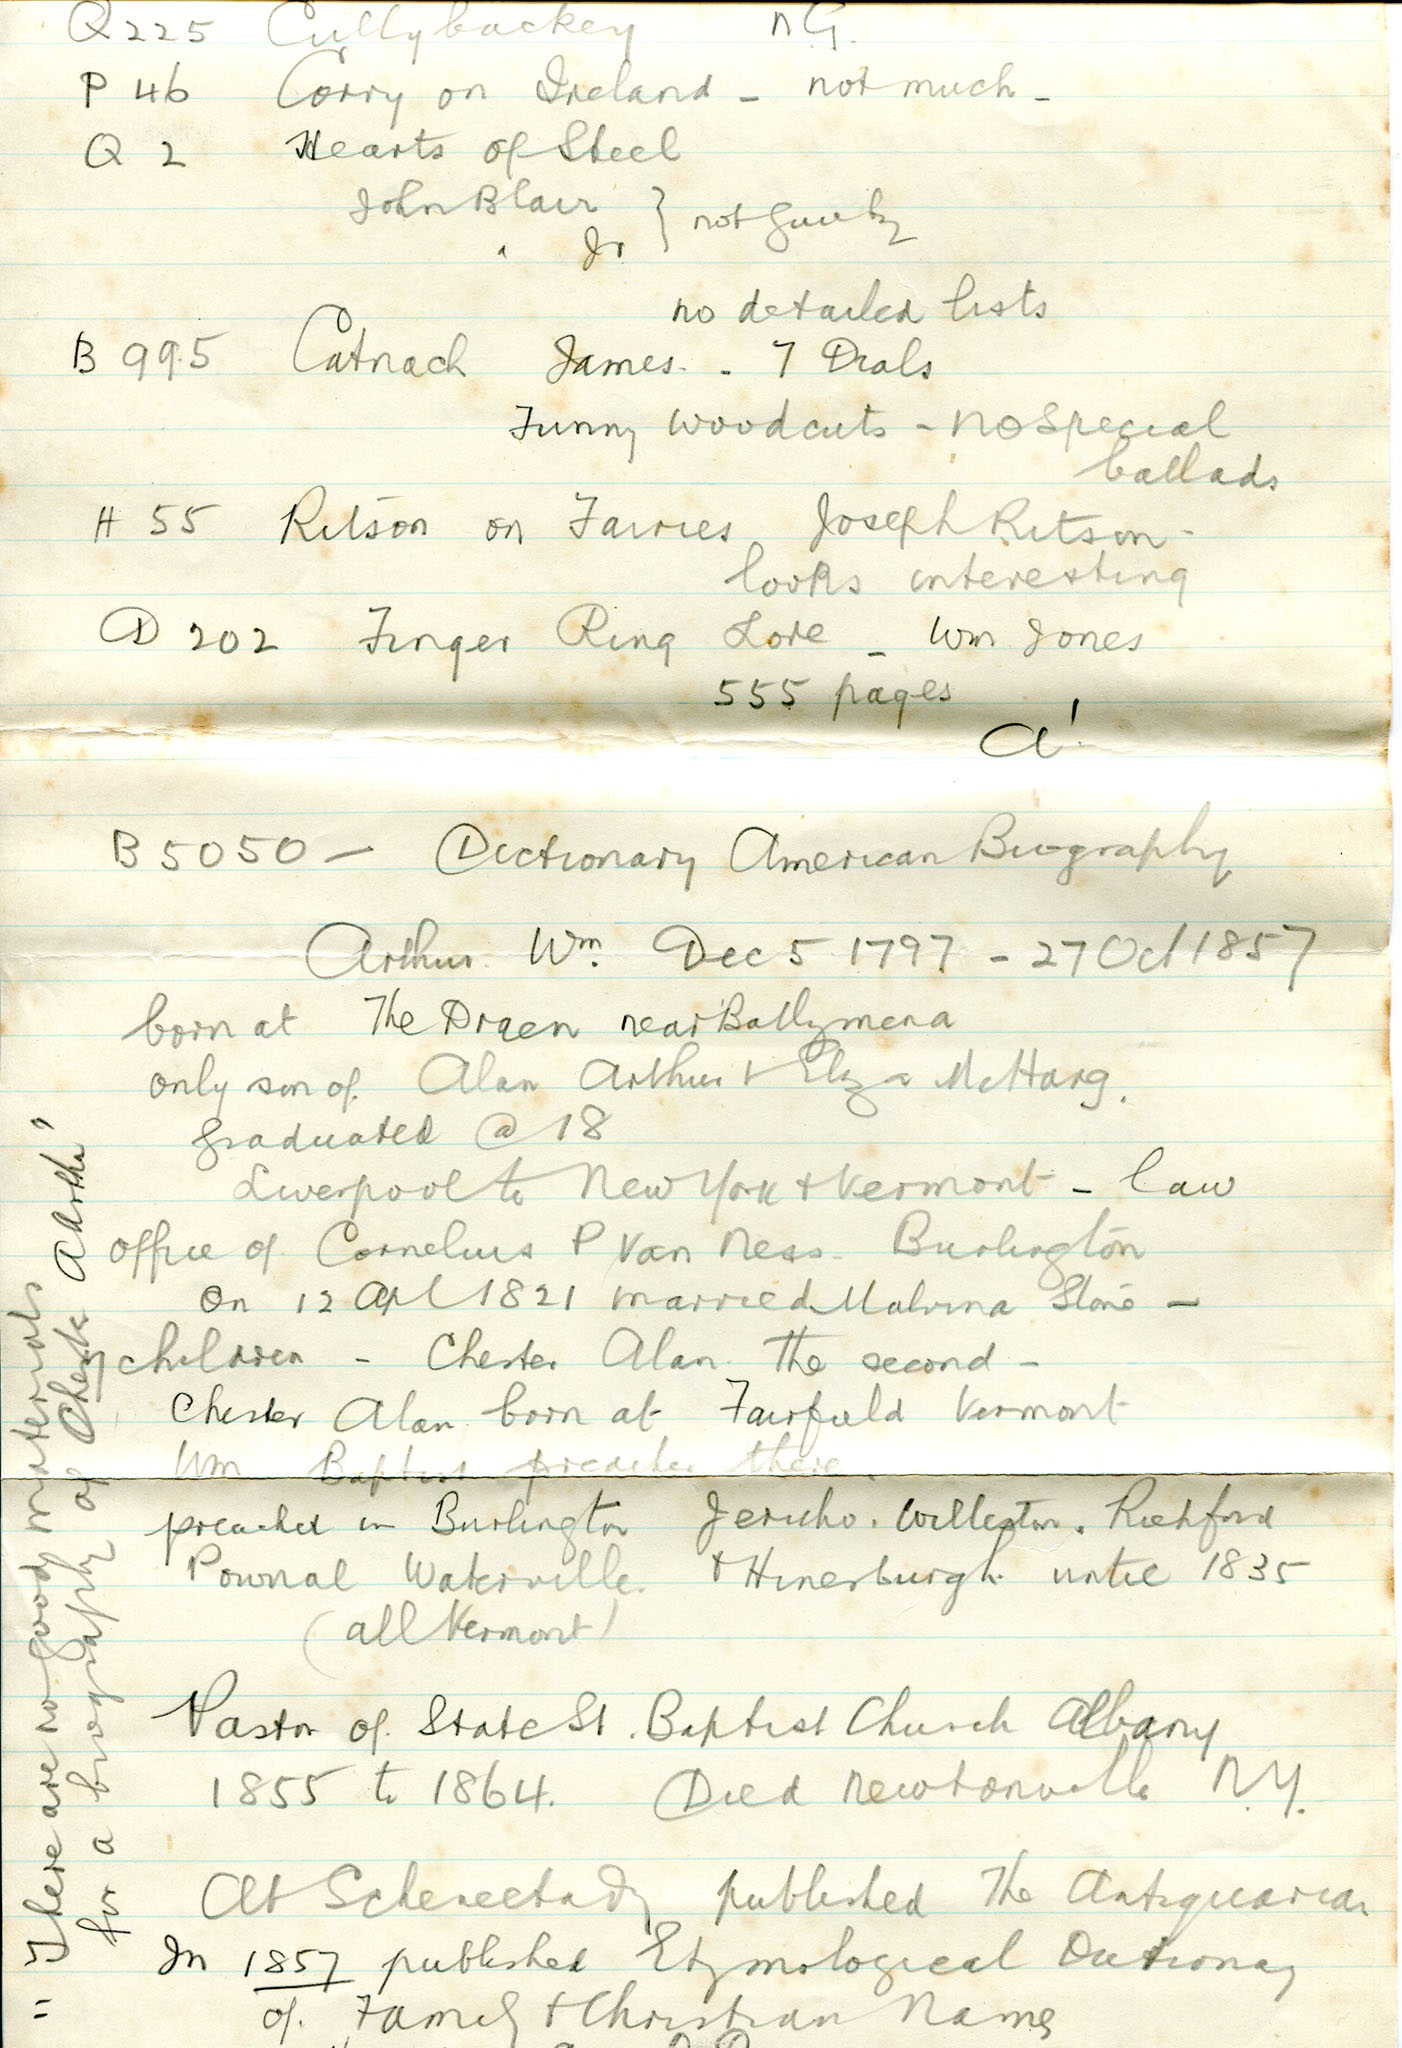 Q 225 Cullybackey nG.
P 46 Corry on Ireland - not much -
Q 2 Hearts of Steel
John Blair } not guilty
" Jr
no detailed lists
B 99.5 Catnach James. - 7 Dials
Funny woodcuts - no special
ballads
H 55 Ritson on Fairies Joseph Ritson -
looks interesting
D 202 Finger Ring Lore - Wm Jones
555 pages
A'.
B 5050 - Dictionary American Biography
Arthur Wm. Dec 5 1797 - 27 Oct 1857
born at The Draen near Ballymena
only son of Alan Arthur + Eliza McHarg.
graduated @ 18
Liverpool to New York + Vermont - law
office of Cornelius P Van Ness - Burlington
on 12 Apl 1821 married Malvina Stone -
children - Chester Alan the second -
Chester Alan born at Fairfield Vermont
Wm Baptist preacher there.
preached in Burlington Jericho. Williston. Richford
Pownal Waterville. + Hinesburgh until 1835
(all Vermont)
Pastor of State St. Baptist Church Albany
1855 to 1864. Died Newtonville N.Y.
At Schenectady published The Antiquarian
In 1857 published Etymological Dictionary
of Family + Christian Names
= "There are no good materials
for a biography of Chest. A. Arthur"